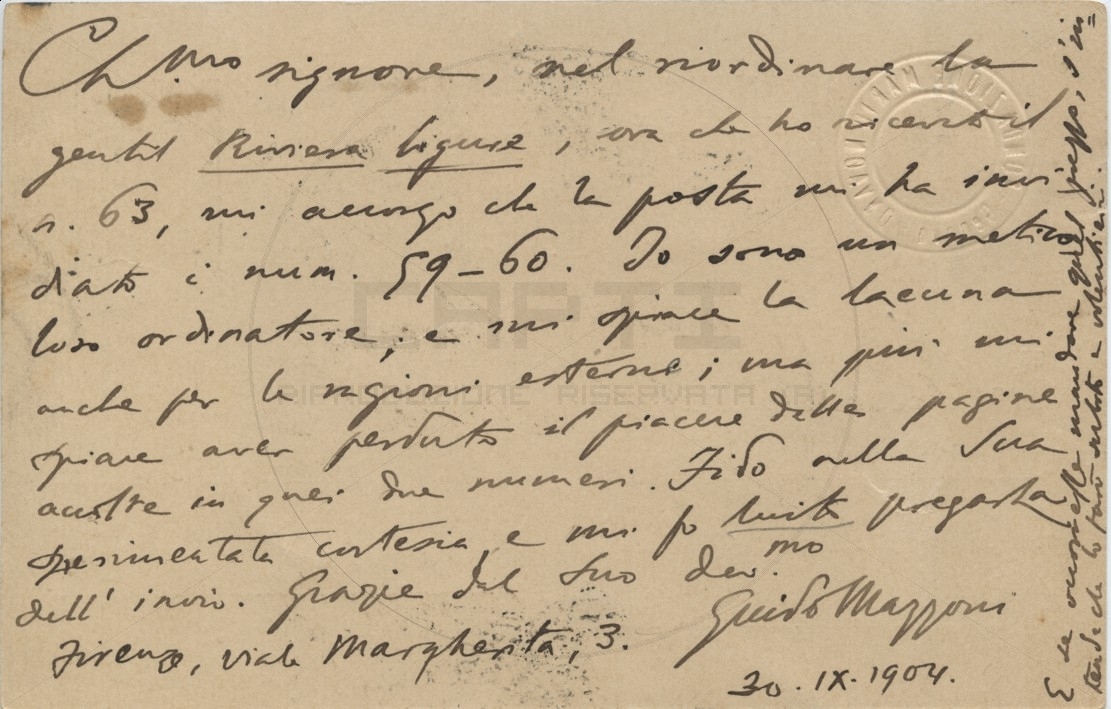 Ch.mo signore, nel riordinare la
gentil Riviera Ligure, ora che ho ricevuto il
n. 63, mi accorgo che la posta mi ha invi
diato i num. 59-60. Io sono un metico
loso ordinatore, e mi spiace la lacuna
anche per le ragioni esterne; ma più mi
spiace aver perduto il piacere delle pagine
accolte in quei due numeri. Fido nella Sua
sperimentata cortesia, e mi fo lecito pregarla
dell' invio. Grazie dal Suo dev.mo
Guido Mazzoni
Firenze, viale Margherita, 3.
30. IX. 1904.
E se occorresse mandare quel prezzo, s'in=
tende che lo farò subito e volentieri.
CAPTI
RIPRODUZIONE RISERVATA